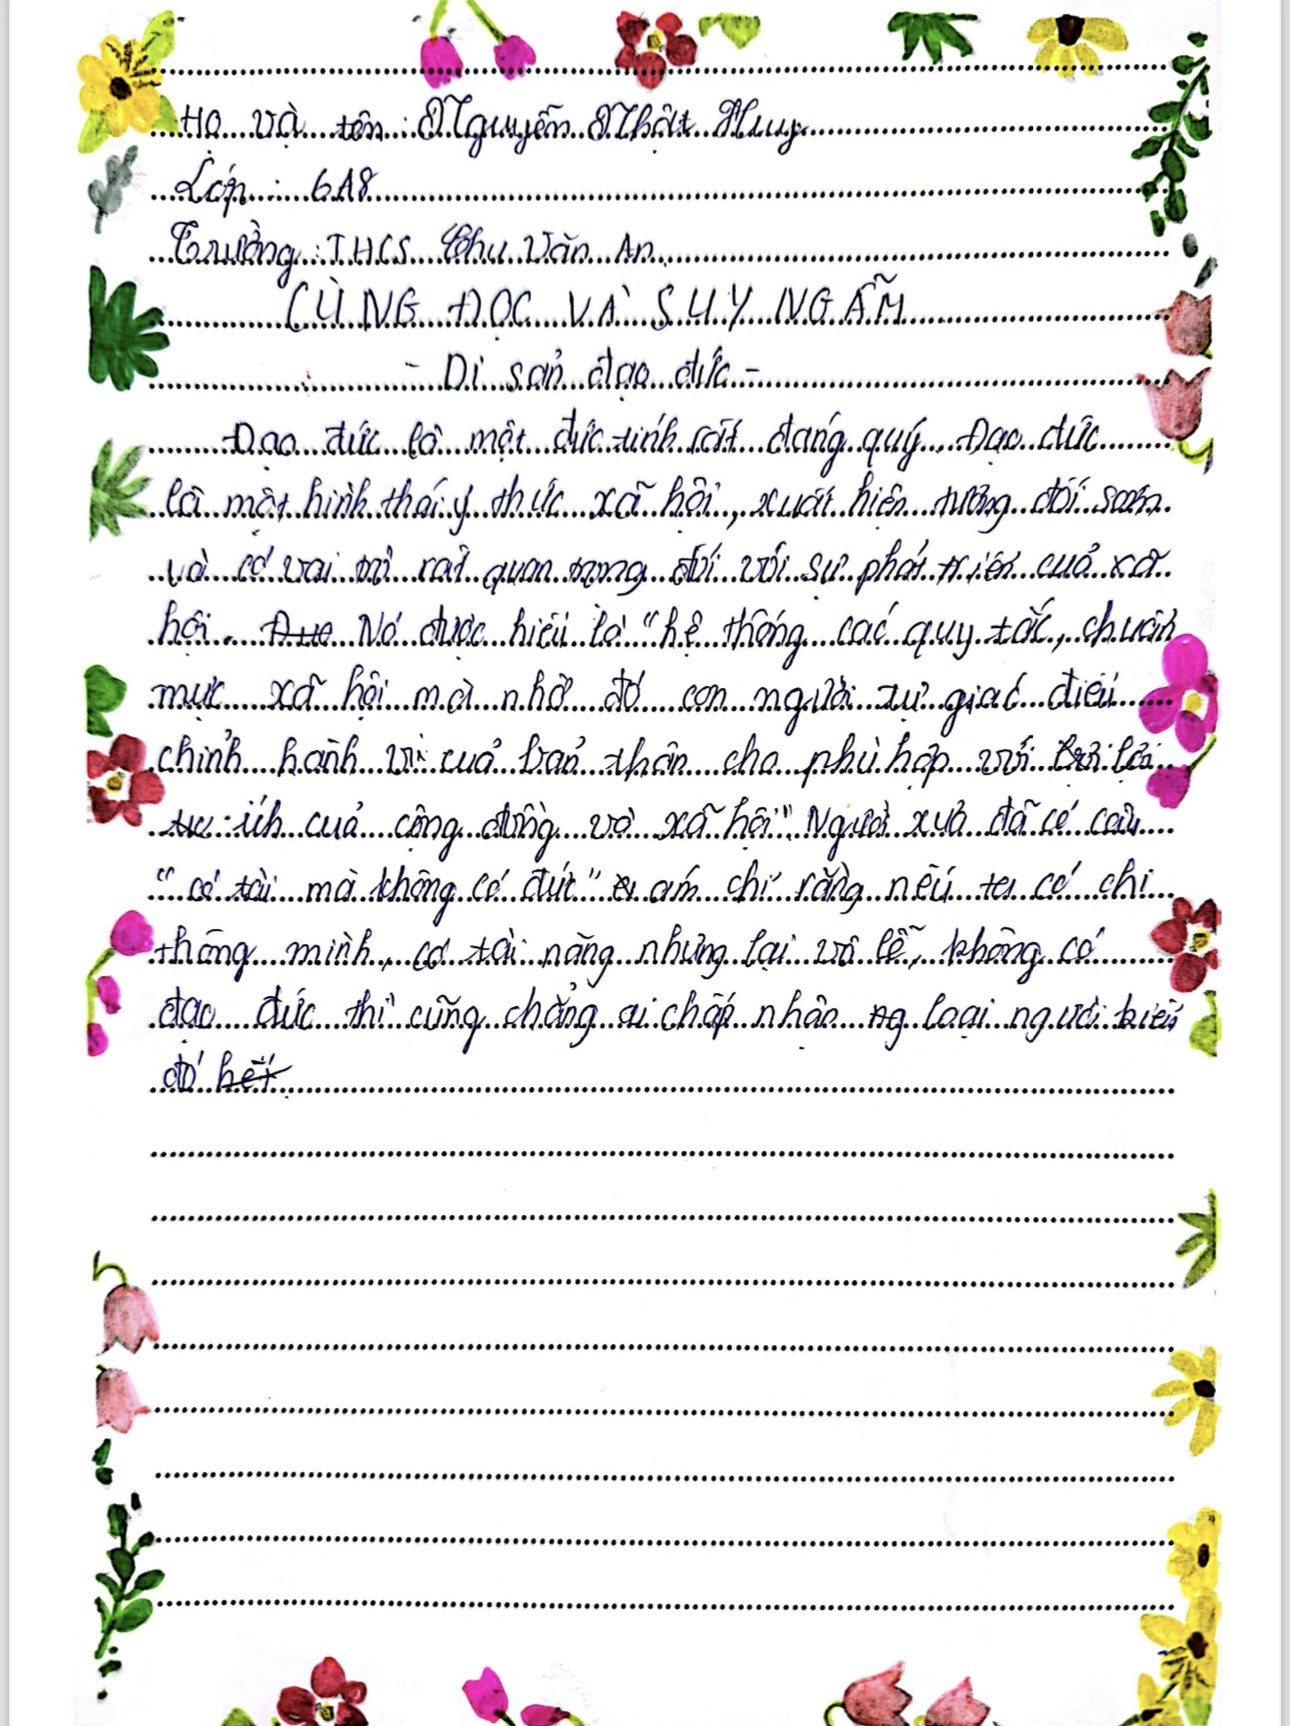 Họ và tên : Nguyễn Nhật Huy
Lớp : 6A8
Trường : THCS Chu Văn An
CÙNG ĐỌC VÀ SUY NGẪM
- Di sản đạo đức -
Đạo đức là một đức tính rất đáng quý. Đạo đức
là một hình thái ý thức xã hội, xuất hiện tương đối sớm
và có vai trò rất quan trọng đối với sự phát triển của xã
hội. Nó được hiểu là "hệ thống các quy tắc, chuẩn
mực xã hội mà nhờ đó con người tự giác điều
chỉnh hành vi của bản thân cho phù hợp với lợi
ích của cộng đồng và xã hội" Người xưa đã có câu
"có tài mà không có đức" ám chỉ rằng nếu ta có chi
thông minh, có tài năng nhưng lại vô lễ, không có
đạo đức thì cũng chẳng ai chấp nhận loại người kiểu
đó